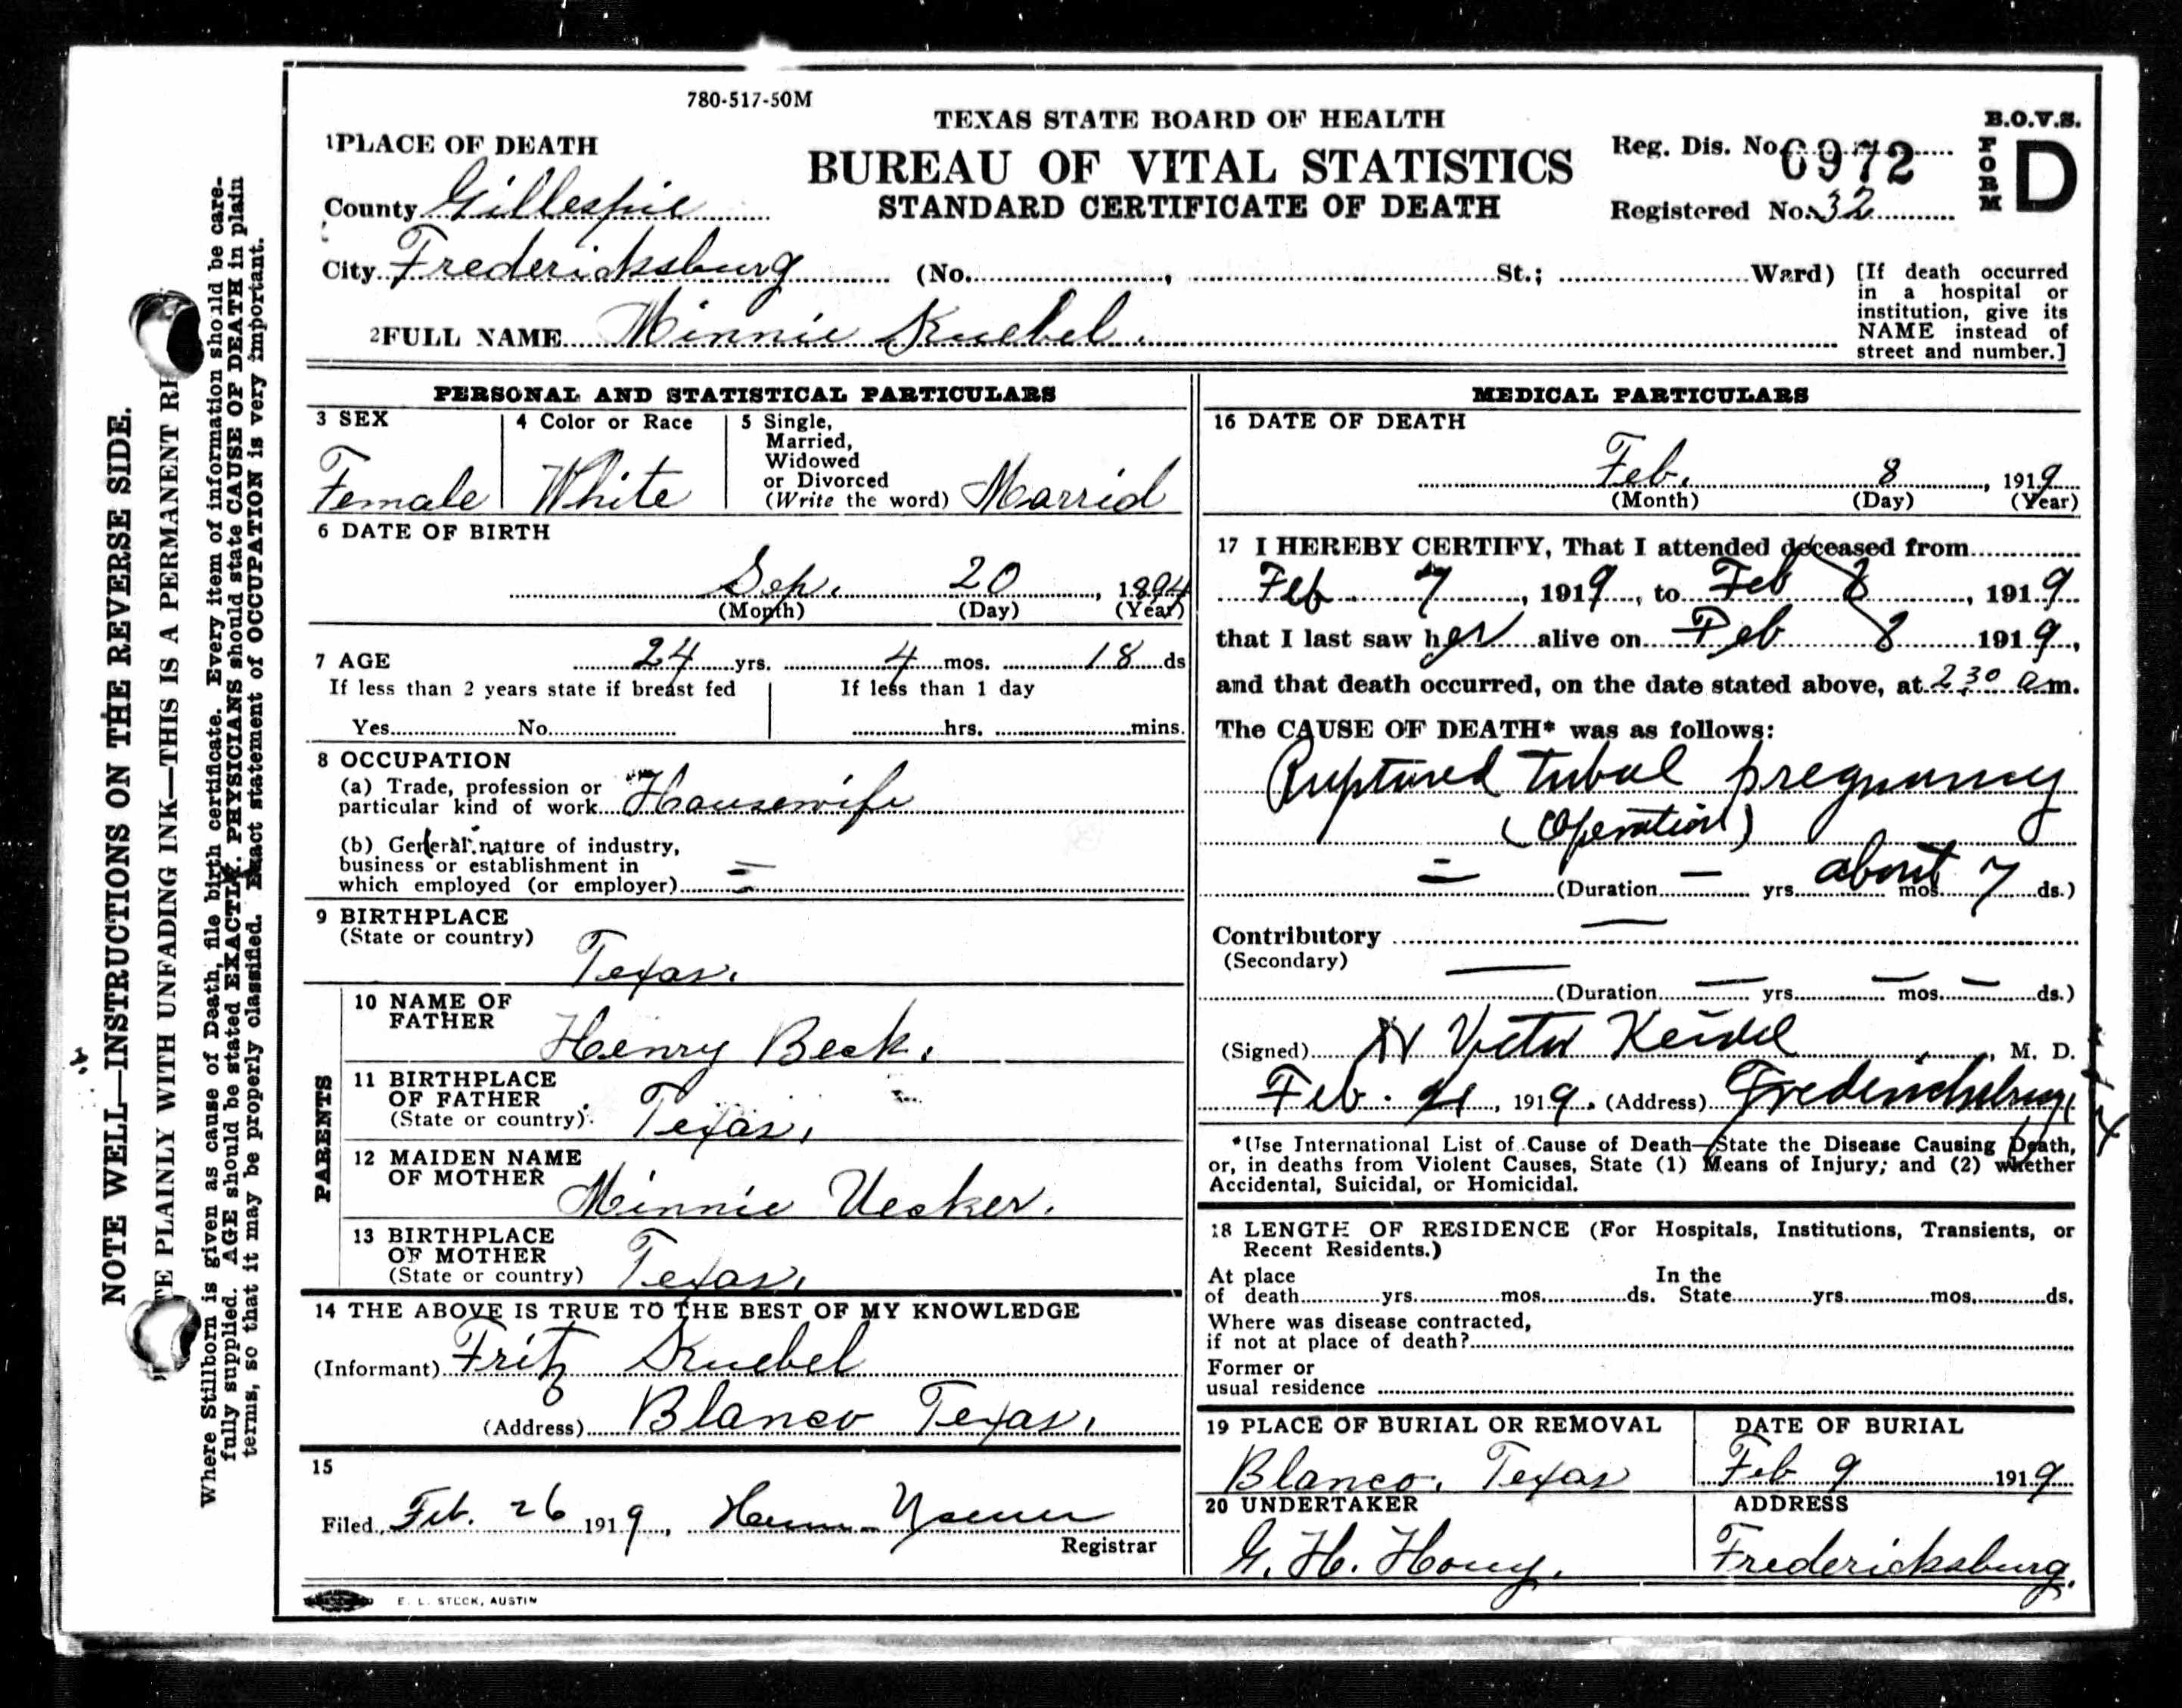 780-517-50M
TEXAS STATE BOARD OF HEALTH
BUREAU OF VITAL STATISTICS
STANDARD CERTIFICATE OF DEATH
B.O.V.S.
FORM D
Reg. Dis. No. 6972
Registered No. 32
1 PLACE OF DEATH
County Gillespie
City Fredericksburg (No. , St.; Ward)
[If death occurred
in a hospital or
institution, give its
NAME instead of
street and number.]
2 FULL NAME Minnie Kuebel.
PERSONAL AND STATISTICAL PARTICULARS
3 SEX
Female
4 Color or Race
White
5 Single,
Married,
Widowed
or Divorced
(Write the word) Marrid
6 DATE OF BIRTH
Sep. 20, 1894
(Month) (Day) (Year)
7 AGE 24 yrs. 4 mos. 18 ds
If less than 2 years state if breast fed
Yes No
If less than 1 day
hrs. mins.
8 OCCUPATION
(a) Trade, profession or
particular kind of work Housewife
(b) General nature of industry,
business or establishment in
which employed (or employer)
9 BIRTHPLACE
(State or country)
Texas.
PARENTS
10 NAME OF
FATHER
Henry Beck.
11 BIRTHPLACE
OF FATHER
(State or country)
Texas.
12 MAIDEN NAME
OF MOTHER
Minnie Uecker.
13 BIRTHPLACE
OF MOTHER
(State or country)
Texas.
14 THE ABOVE IS TRUE TO THE BEST OF MY KNOWLEDGE
(Informant) Fritz Kuebel
(Address) Blanco Texas.
15
Filed Feb. 26 1919,
Registrar
E. L. STECK, AUSTIN
MEDICAL PARTICULARS
16 DATE OF DEATH
Feb. 8, 1919
(Month) (Day) (Year)
17 I HEREBY CERTIFY, That I attended deceased from
Feb 7, 1919, to Feb 8, 1919
that I last saw her alive on Feb 8 1919,
and that death occurred, on the date stated above, at 2:30 a.m.
The CAUSE OF DEATH* was as follows:
Ruptured tubal pregnancy
(Operation)
(Duration — yrs. about mos. 7 ds.)
Contributory —
(Secondary)
(Duration — yrs. — mos. — ds.)
(Signed) Victor Keidel, M. D.
Feb. , 1919. (Address) Fredericksburg,
*Use International List of Cause of Death—State the Disease Causing Death,
or, in deaths from Violent Causes, State (1) Means of Injury; and (2) whether
Accidental, Suicidal, or Homicidal.
18 LENGTH OF RESIDENCE (For Hospitals, Institutions, Transients, or
Recent Residents.)
At place
of death yrs. mos. ds.
In the
State yrs. mos. ds.
Where was disease contracted,
if not at place of death?
Former or
usual residence
19 PLACE OF BURIAL OR REMOVAL
Blanco, Texas
DATE OF BURIAL
Feb 9 1919
20 UNDERTAKER
G. H. Houy.
ADDRESS
Fredericksburg.
NOTE WELL—INSTRUCTIONS ON THE REVERSE SIDE.
TE PLAINLY WITH UNFADING INK—THIS IS A PERMANENT RE
Where Stillborn is given as cause of Death, file birth certificate. Every item of information should be care-
fully supplied. AGE should be stated EXACTLY. PHYSICIANS should state CAUSE OF DEATH in plain
terms, so that it may be properly classified. Exact statement of OCCUPATION is very important.